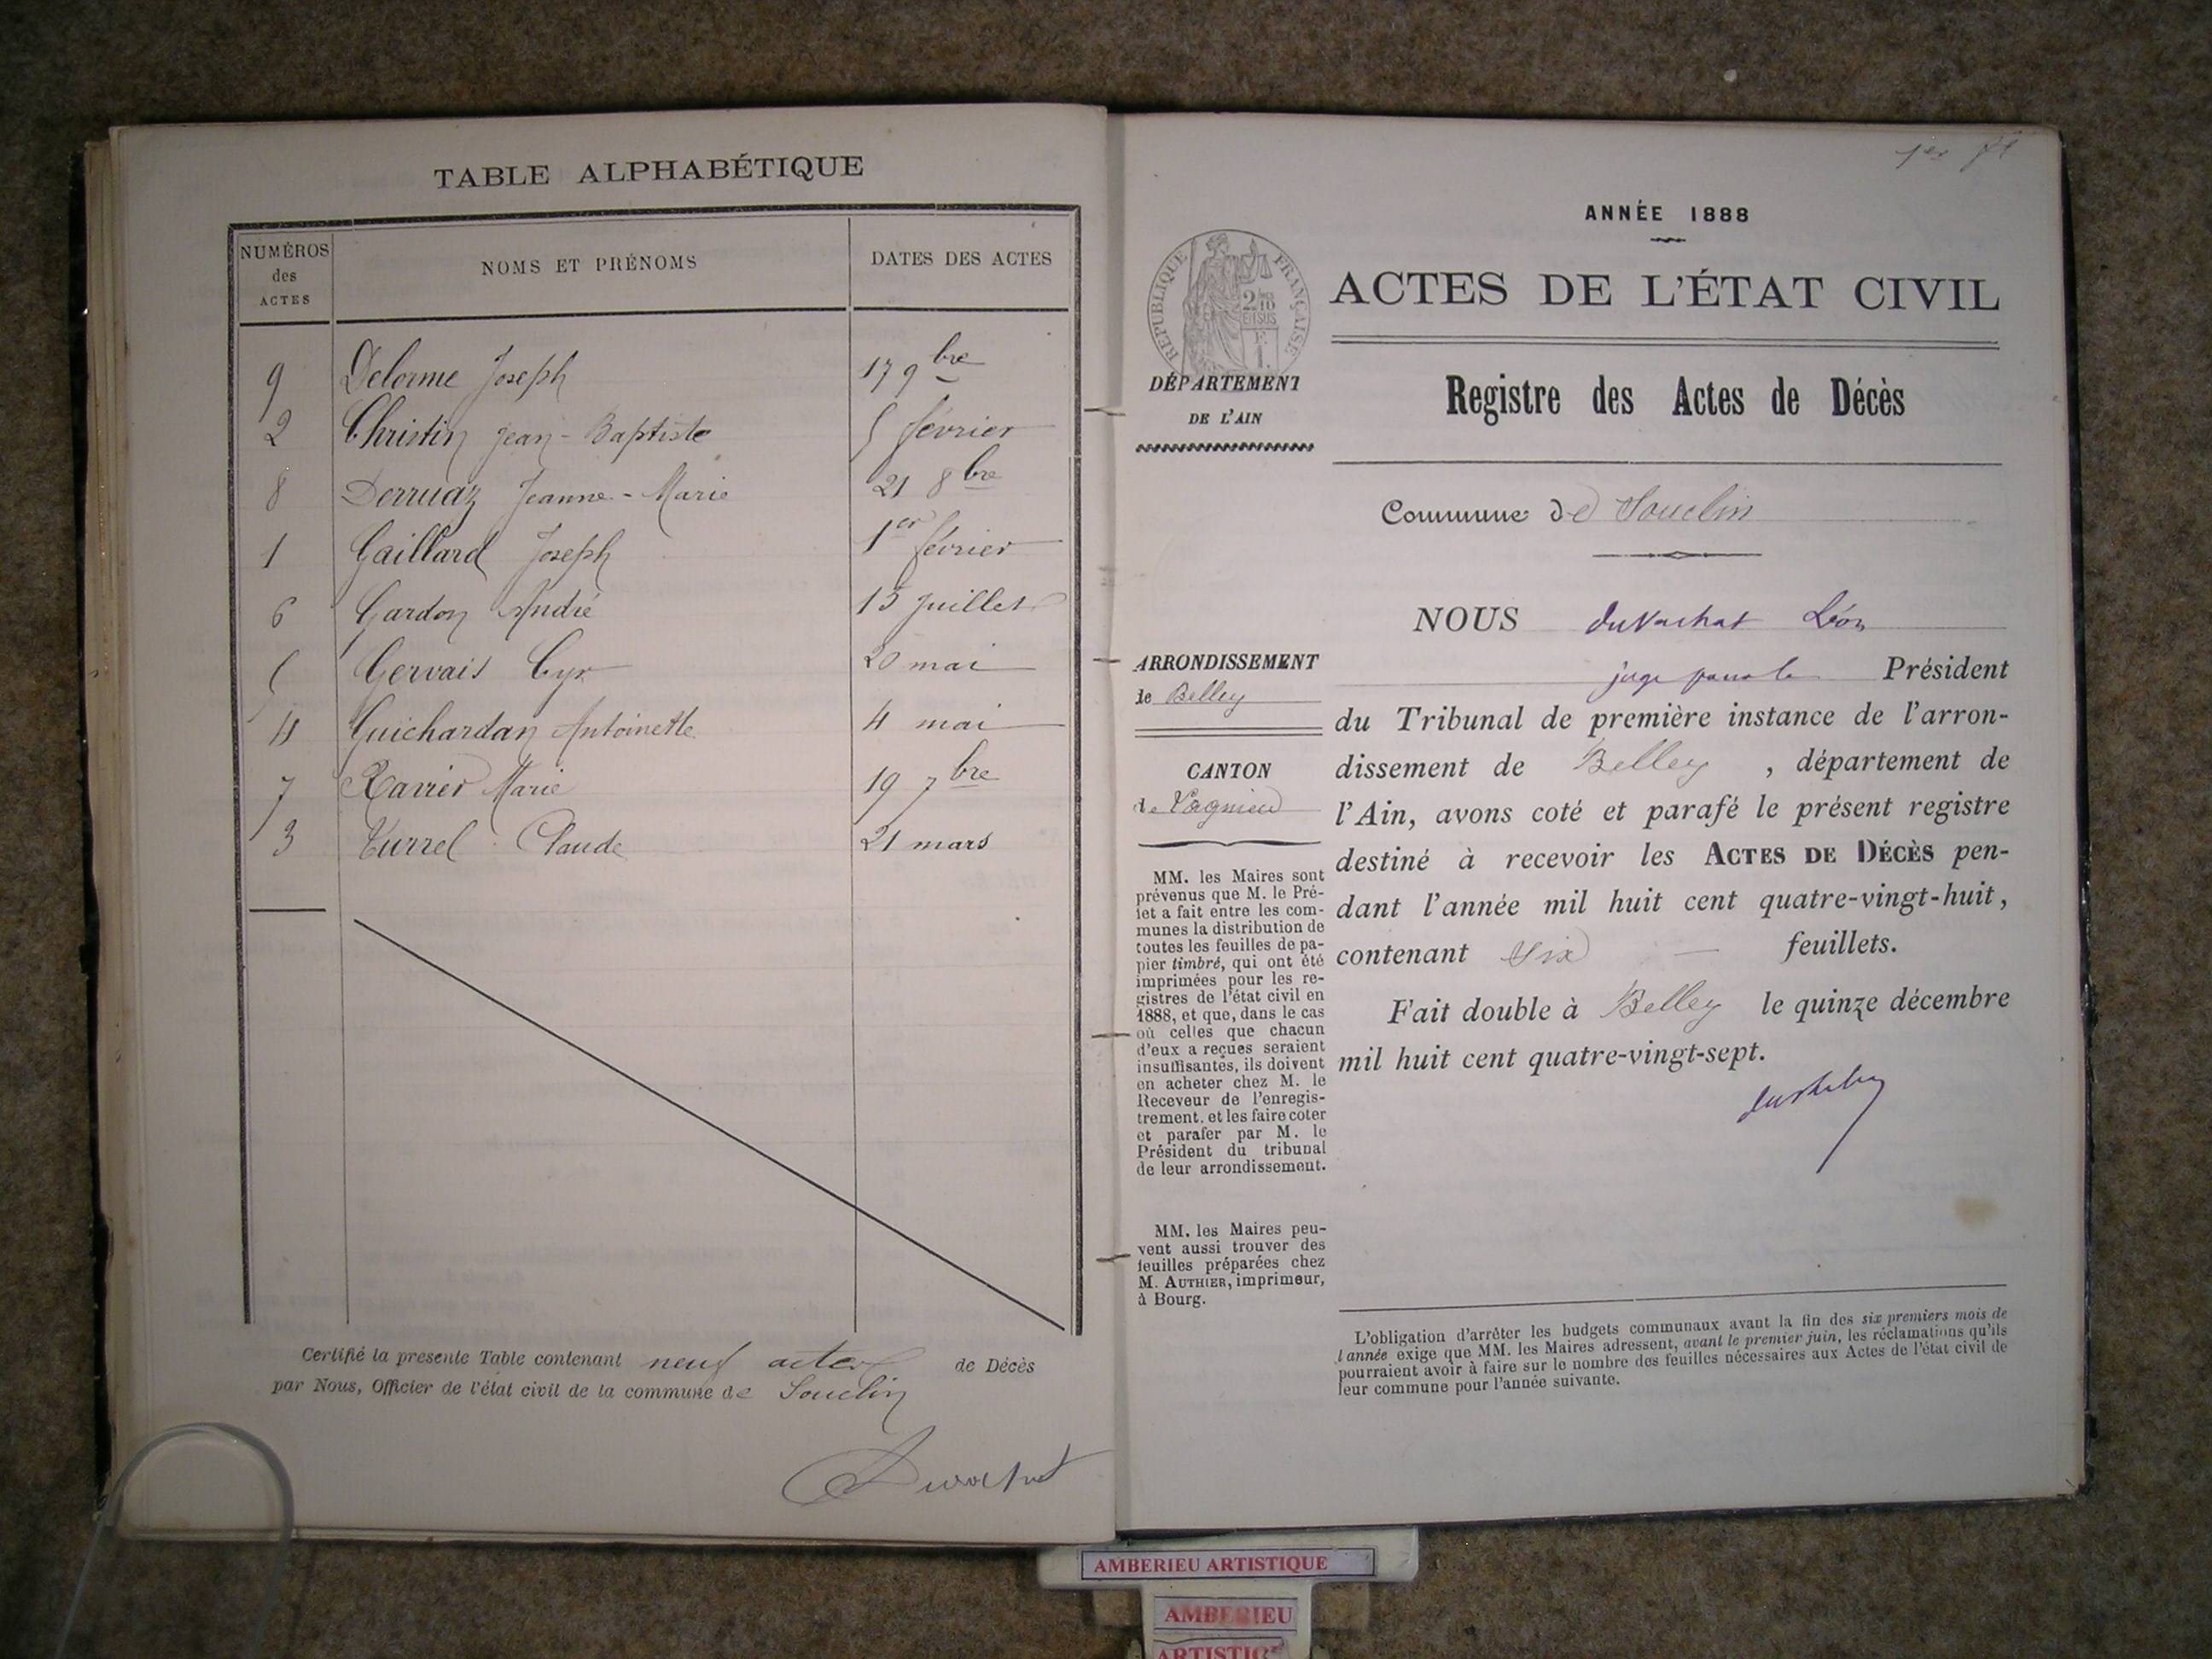 TABLE ALPHABÉTIQUE
NUMÉROS
des
ACTES
NOMS ET PRÉNOMS
DATES DES ACTES
9 Delorme Joseph 17 9bre
2 Christin Jean-Baptiste 5 février
8 Derruaz Jeanne-Marie 21 8bre
1 Gaillard Joseph 1er février
6 Gardon André 15 juillet
5 Gervais Cyr 20 mai
4 Guichardan Antoinette 4 mai
7 Ravier Marie 19 7bre
3 Turrel Claude 21 mars
Certifié la présente Table contenant neuf actes de Décès
par Nous, Officier de l'état civil de la commune de Souclin
1er
ANNÉE 1888
RÉPUBLIQUE FRANÇAISE
ACTES DE L'ÉTAT CIVIL
DÉPARTEMENT
DE L'AIN
Registre des Actes de Décès
Commune de Souclin
ARRONDISSEMENT
de Belley
CANTON
de Lagnieu
MM. les Maires sont
prévenus que M. le Pré-
fet a fait entre les com-
munes la distribution de
toutes les feuilles de pa-
pier timbré, qui ont été
imprimées pour les re-
gistres de l'état civil en
1888, et que, dans le cas
où celles que chacun
d'eux a reçues seraient
insuffisantes, ils doivent
en acheter chez M. le
Receveur de l'enregis-
trement, et les faire coter
et parafer par M. le
Président du tribunal
de leur arrondissement.
MM. les Maires peu-
vent aussi trouver des
feuilles préparées chez
M. AUTHIER, imprimeur,
à Bourg.
NOUS Duvachat Léon
juge pour le Président
du Tribunal de première instance de l'arron-
dissement de Belley, département de
l'Ain, avons coté et parafé le présent registre
destiné à recevoir les ACTES DE DÉCÈS pen-
dant l'année mil huit cent quatre-vingt-huit,
contenant six feuillets.
Fait double à Belley le quinze décembre
mil huit cent quatre-vingt-sept.
L'obligation d'arrêter les budgets communaux avant la fin des six premiers mois de
l'année exige que MM. les Maires adressent, avant le premier juin, les réclamations qu'ils
pourraient avoir à faire sur le nombre des feuilles nécessaires aux Actes de l'état civil de
leur commune pour l'année suivante.
AMBERIEU ARTISTIQUE
AMBERIEU